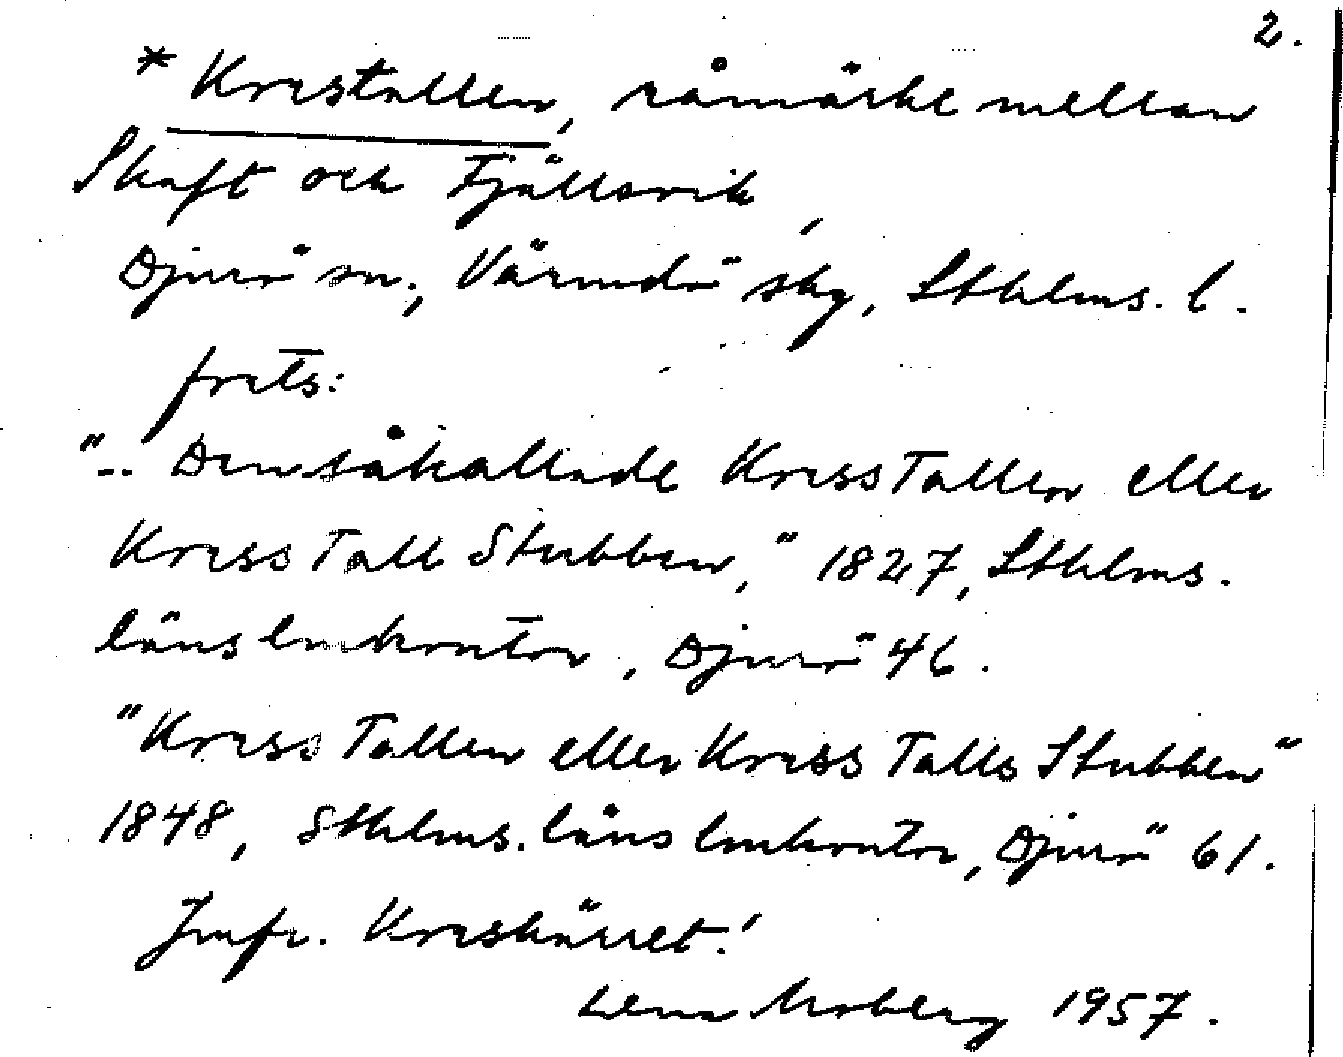 2.
* Kristallen, råmärke mellan
Skaft och Fjällsvik,
Djurö sn., Värmdö skg, Sthlms. l.
Den såkallade Kriss Tallen eller
Kriss Tall Stubben," 1827, Sthlms.
läns lmkontor, Djurö 46.
"Kriss Tallen eller Kriss Talls Stubben"
1848, Sthlms. läns lmkontor, Djurö 61.
Jmfr. Kriskärret!
Lena Moberg 1957.